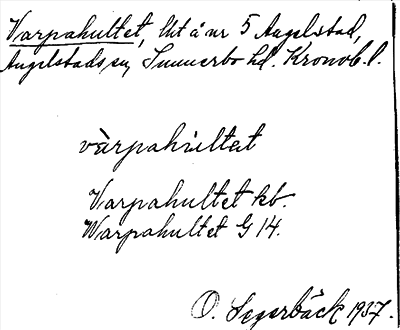 Varpahultet, lht å nr 5 Angelstad,
Angelstads sn, Sunnerbo hd. Kronob. l.
vàrpahùltet
Varpahultet kb.
Warpahultet G 14.
O. Segerbäck 1937.